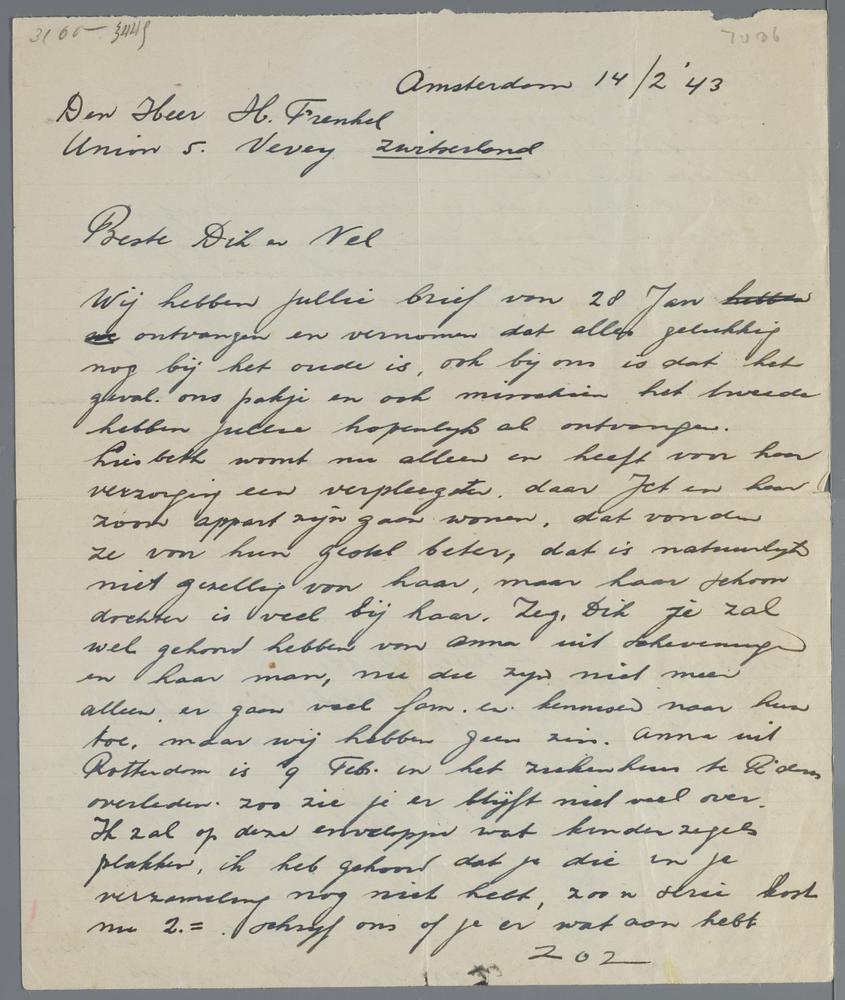 3165 - 3449
7036
Amsterdam 14/2 '43
Den Heer H. Frenkel
Union 5. Vevey Zwitserland
Beste Dik en Nel
Wij hebben jullie brief van 28 Jan hebben
we ontvangen en vernomen dat alles gelukkig
nog bij het oude is, ook bij ons is dat het
geval. ons pakje en ook misschien het tweede
hebben jullie hopenlijk al ontvangen.
Liesbeth woont nu alleen en heeft voor haar
verzorging een verpleegster. daar Jet en haar
zoon appart zijn gaan wonen, dat vonden
ze voor hun gestel beter, dat is natuurlijk
niet gezellig voor haar, maar haar schoon
dochter is veel bij haar. Zeg, Dik je zal
wel gehoord hebben van Anna uit Scheveningen
en haar man, nu die zijn niet meer
alleen, er gaan veel fam. en kennissen naar hun
toe, maar wij hebben geen zin. Anna uit
Rotterdam is 9 Feb. in het ziekenhuis te R'dam
overleden. zoo zie je er blijft niet veel over.
Ik zal op deze enveloppe wat kinderzegels
plakken, ik heb gehoord dat je die in je
verzameling nog niet hebt, zoo'n serie kost
nu 2.= . schrijf ons of je er wat aan hebt
ZOZ